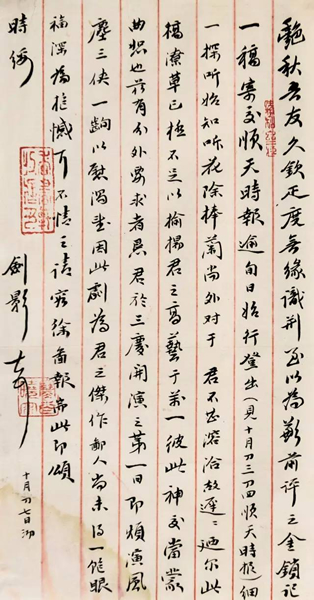 艷秋吾友久欽丰度無緣識荊至以為歉前評之金鎖記
一稿寄交順天時報逾旬日始行登出(見十月初三初四順天時報)細
一探听始知听花除棒蘭尚外对于 君不甚溶洽故遲遲迺尔此
稿潦草已極不足以揄揚君之高藝于萬一彼此神交當蒙
曲恕也茲有分外要求者思君於三慶開演之第一日即煩演風
塵三俠一齣以慰渴望因此劇為君之傑作鄙人尚未得一飽眼
福深為抱憾耳不情之請容徐圖報專此即頌
時綏
劍影
十月初七日泐